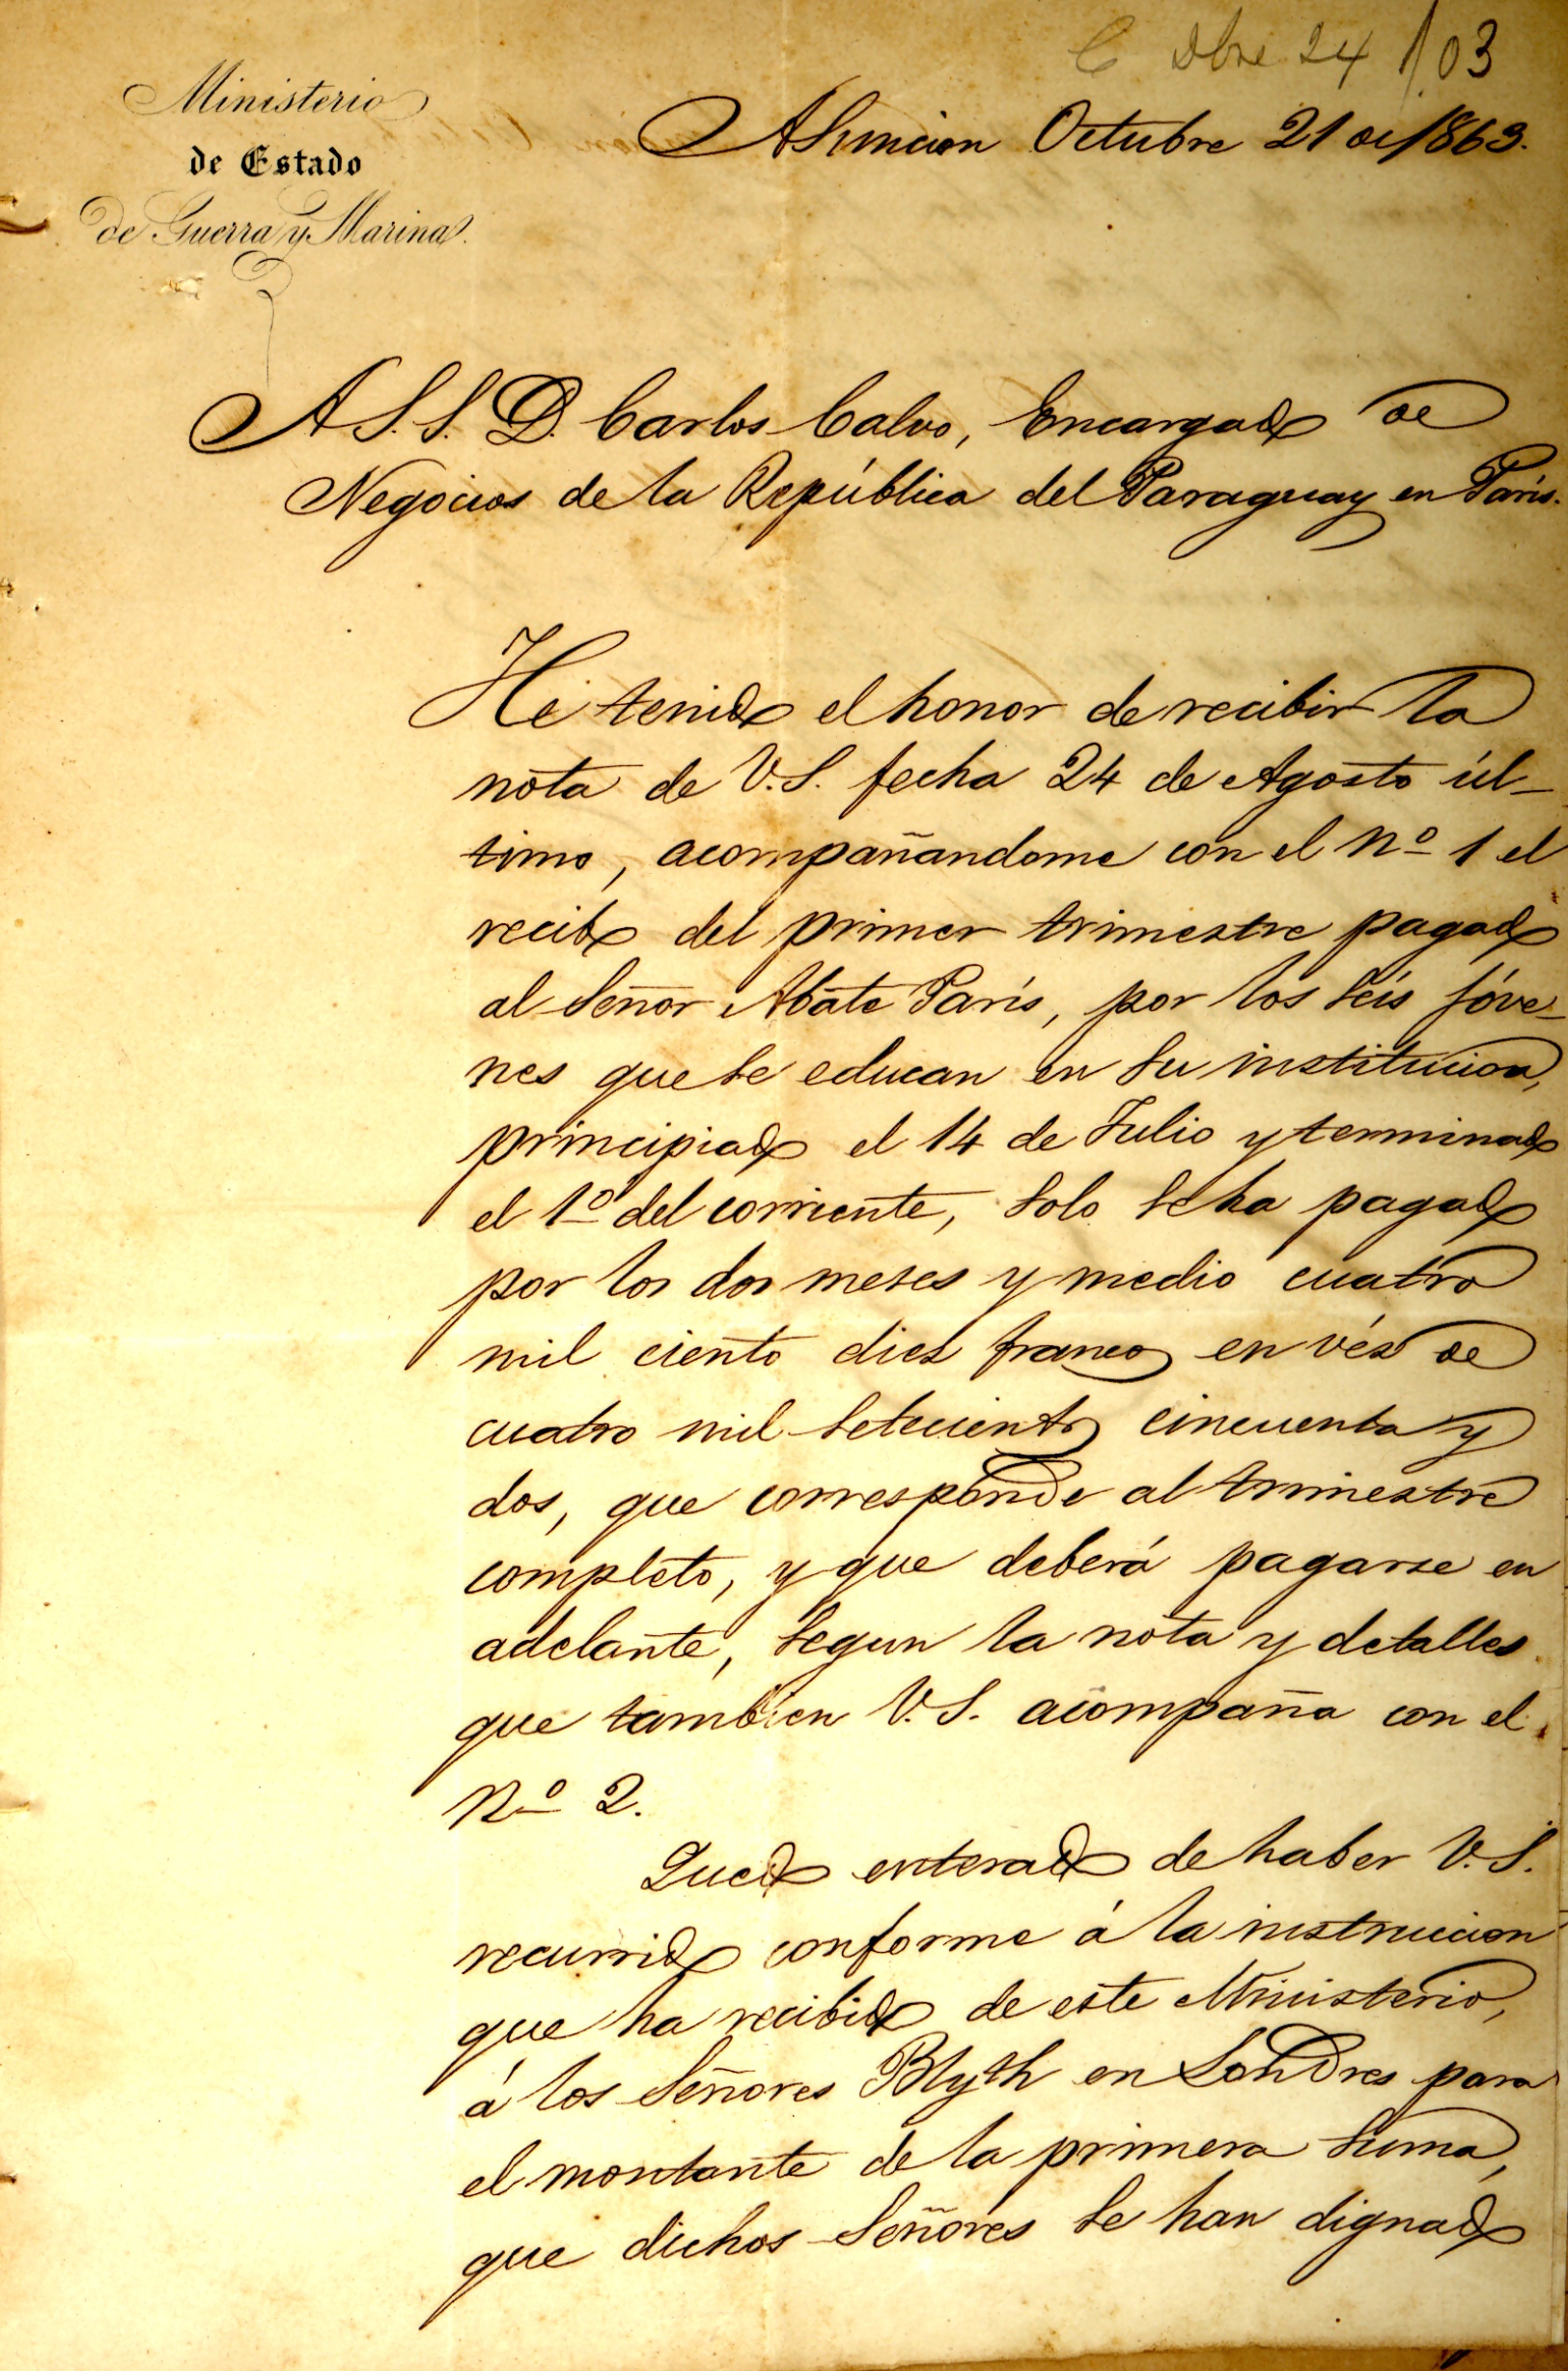 C Dbre 24/03
Ministerio
de Estado
de Guerra y Marina.
Asuncion Octubre 21 de 1863.
A S.S. D. Carlos Calvo, Encargado de
Negocios de la República del Paraguay en Paris.
He tenido el honor de recibir la
nota de V.S. fecha 24 de Agosto úl-
timo, acompañandome con el Nº 1 el
recibo del primer trimestre pagado
al Señor Abate Paris, por los seis jóve-
nes que se educan en su institucion,
principiado el 14 de Julio y terminado
el 1º del corriente, solo se ha pagado
por los dos meses y medio cuatro
mil ciento diez francos en vés de
cuatro mil setecientos cincuenta y
dos, que corresponde al trimestre
completo, y que deberá pagarse en
adelante, segun la nota y detalles
que tambien V.S. acompaña con el
Nº 2.
Quedo enterado de haber V.S.
recurrido conforme á la instruccion
que ha recibido de este Ministerio,
á los Señores Blyth en Londres para
el montante de la primera suma,
que dichos Señores se han dignado